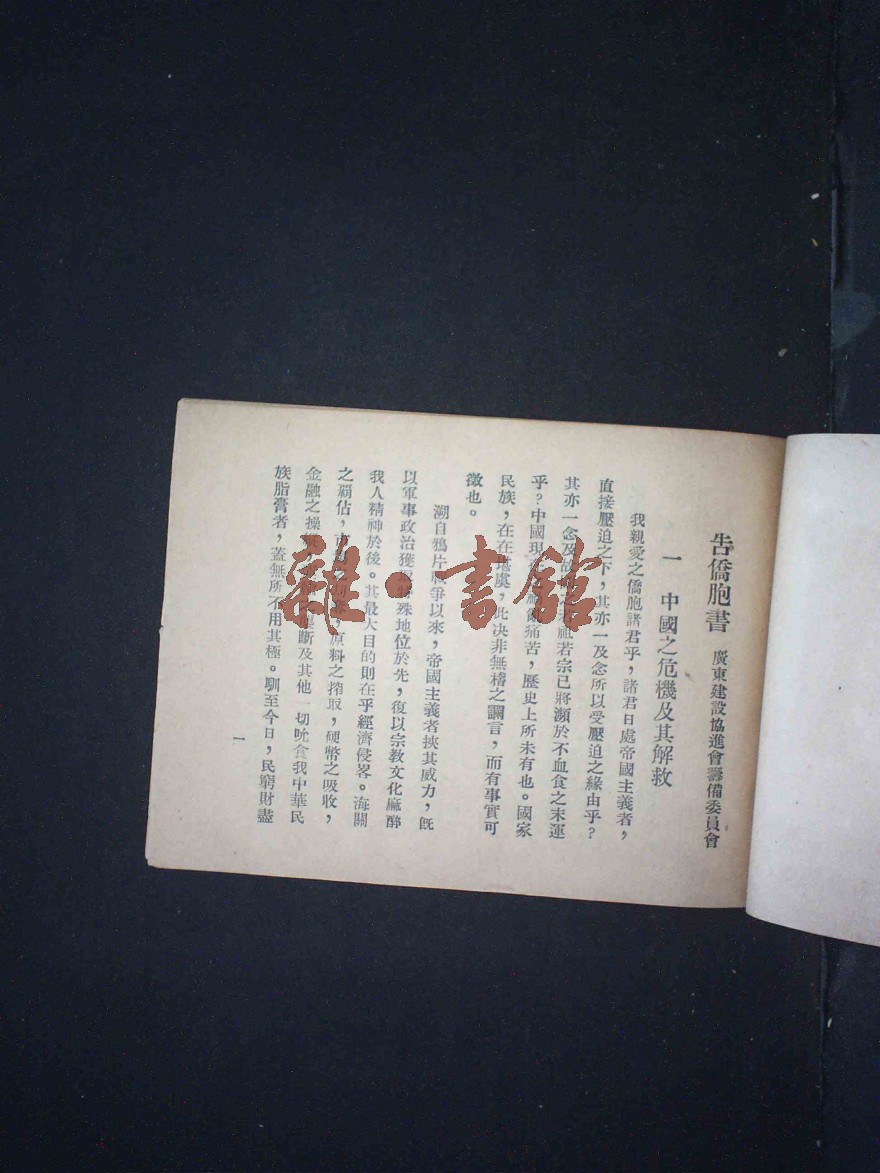 告僑胞書 廣東建設協進會籌備委員會
一 中國之危機及其解救
我親愛之僑胞諸君乎,諸君日處帝國主義者,
直接壓迫之下,其亦一及念所以受壓迫之緣由乎?
其亦一念及故 若祖若宗已將瀕於不血食之末運
乎?中國現 痛苦,歷史上所未有也。國家
民族,在在堪虞,此決非無稽之讕言,而有事實可
徵也。
溯自鴉片戰爭以來,帝國主義者挾其威力,旣
以軍事政治獲取特殊地位於先,復以宗敎文化麻醉
我人精神於後。其最大目的則在乎經濟侵畧。海關
之覇佔, 原料之搾取,硬幣之吸收,
金融之操縱 壟斷及其他一切吮食我中華民
族脂膏者,蓋無所不用其極。馴至今日,民窮財盡
一
雜·書館